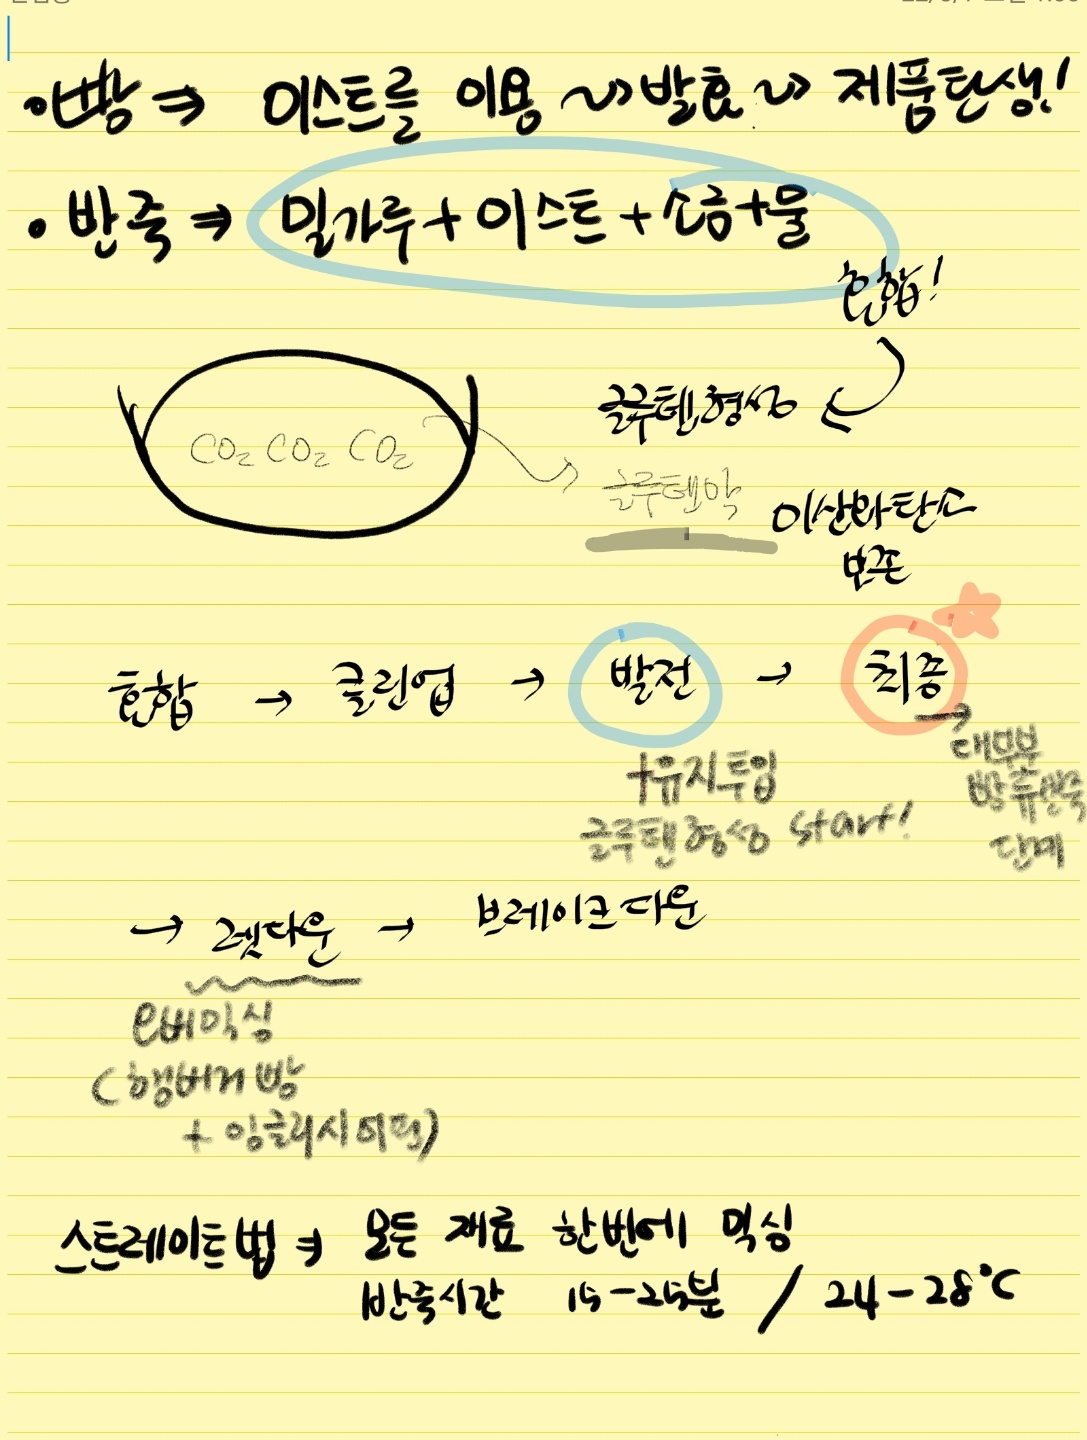 •빵 ⇒ 이스트를 이용 ~> 발효 ~> 제품탄생!
• 반죽 ⇒ 밀가루 + 이스트 + 소금 + 물
혼합!
글루텐형성
CO₂ CO₂ CO₂
글루텐막
이산화탄소
보존
혼합 → 클린업 → 발전 → 최종
+유지투입
글루텐형성 start!
대부분
빵류반죽
단계
→ 렛다운 → 브레이크다운
오버믹싱
(햄버거 빵
+ 잉글리시머핀)
스트레이트법 ⇒ 모든 재료 한번에 믹싱
반죽시간 15-25분 / 24-28°C